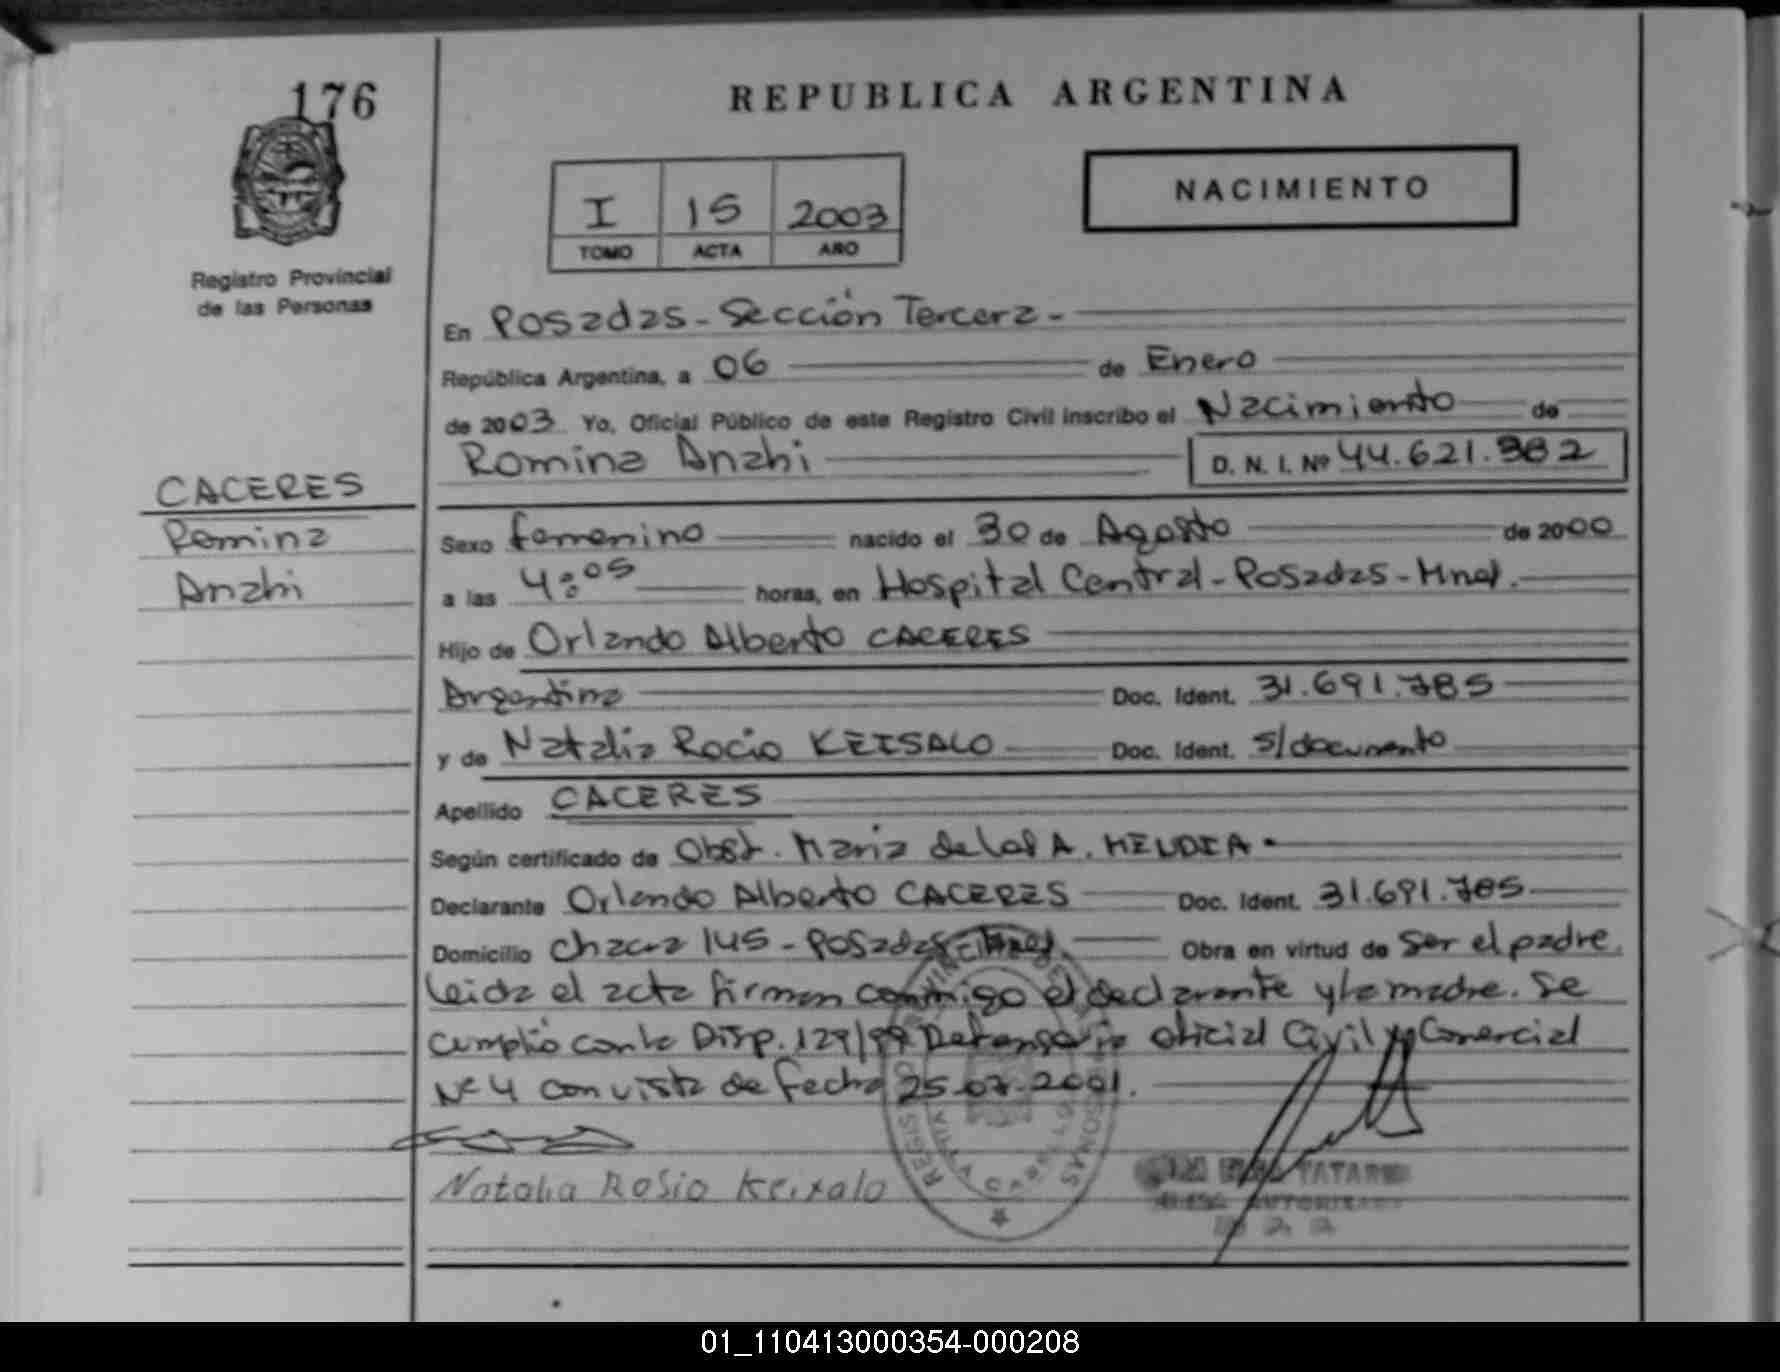 176
REPUBLICA ARGENTINA
NACIMIENTO
I 15 2003
TOMO ACTA AÑO
Registro Provincial
de las Personas
En Posadas - Sección Tercera -
República Argentina, a 06 de Enero
de 2003 Yo, Oficial Público de este Registro Civil inscribo el Nacimiento de
Romina Anahi D. N. I. Nº 44.621.382
CACERES
Romina
Anahi
Sexo femenino nacido el 30 de Agosto de 2000
a las 4:05 horas, en Hospital Central - Posadas - Mnes.
Hijo de Orlando Alberto CACERES
Argentina Doc. Ident. 31.691.785
y de Natalia Rocio KEISALO Doc. Ident. s/documento
Apellido CACERES
Según certificado de Obst. Maria de los A.
Declarante Orlando Alberto CACERES Doc. Ident. 31.691.785
Domicilio Chacra 145 - Posadas - Mnes. Obra en virtud de ser el padre.
Leida el acta firman conmigo el declarante y la madre. Se
cumplió con la Disp. 129/99 Defensoria oficial Civil y Comercial
Nº 4 con vista de fecha 25-07-2001.
Natalia Rosio Keixalo
01_110413000354-000208